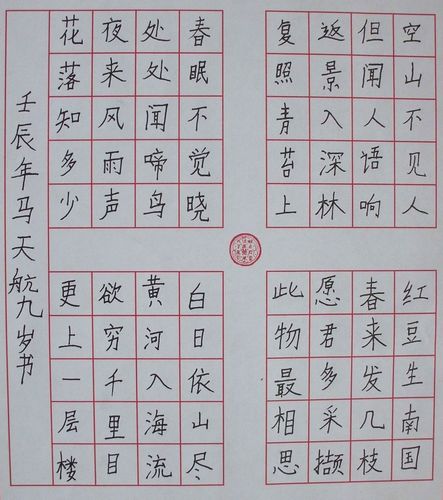 空山不见人
但闻人语响
返景入深林
复照青苔上
红豆生南国
春来发几枝
愿君多采撷
此物最相思
春眠不觉晓
处处闻啼鸟
夜来风雨声
花落知多少
白日依山尽
黄河入海流
欲穷千里目
更上一层楼
壬辰年马天航九岁书